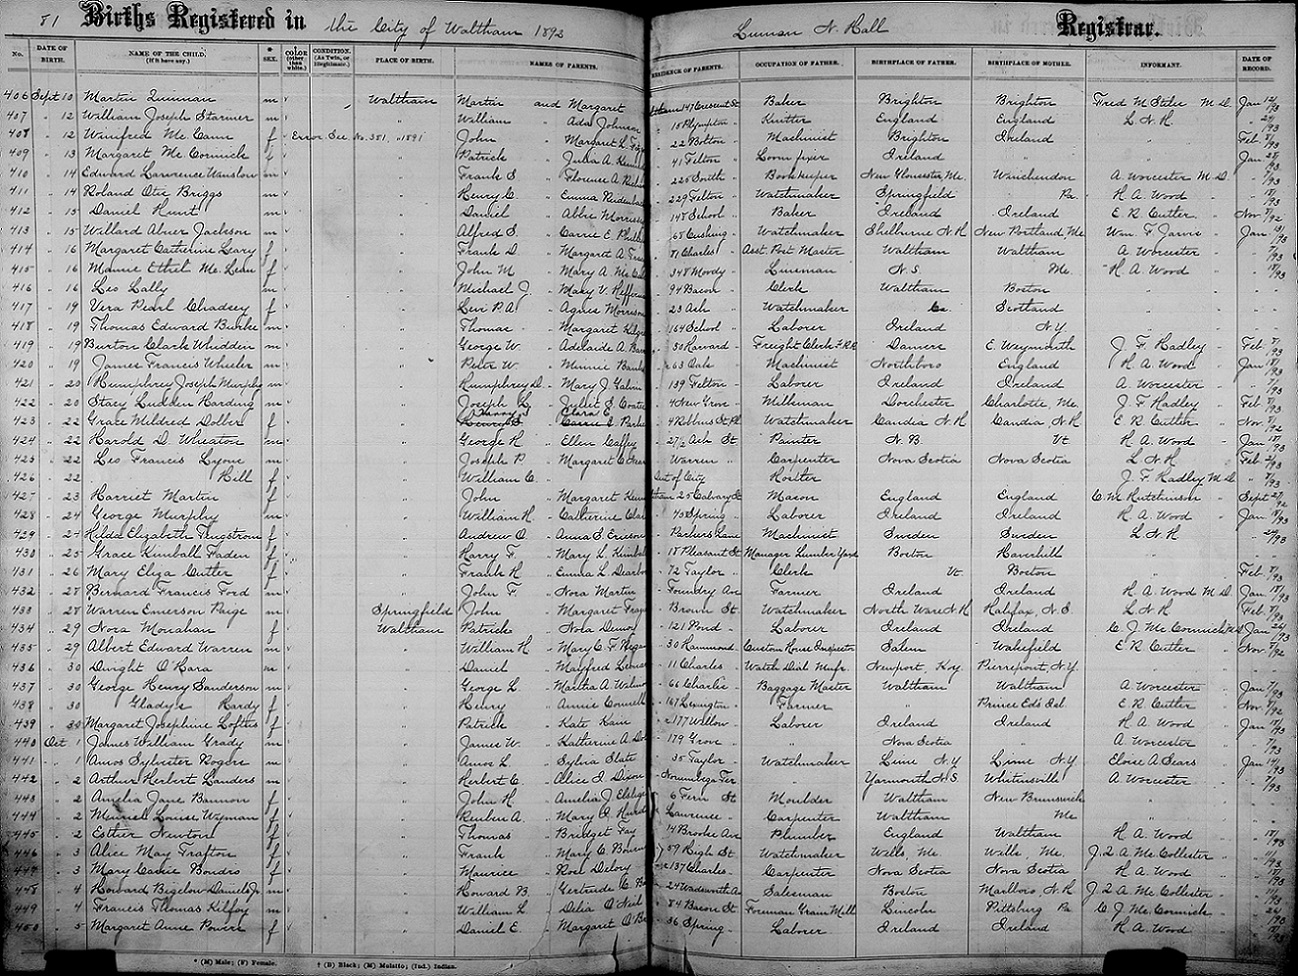 81 Births Registered in the City of Waltham 1892 Luman N. Hall Registrar.
No. DATE OF BIRTH. NAME OF THE CHILD. (If it have any.) SEX. COLOR (other than white.) CONDITION. (As Twin, or Illegitimate.) PLACE OF BIRTH. NAMES OF PARENTS. RESIDENCE OF PARENTS. OCCUPATION OF FATHER. BIRTHPLACE OF FATHER. BIRTHPLACE OF MOTHER. INFORMANT. DATE OF RECORD.
406 Sept 10 Martin Quinnan m Waltham Martin and Margaret 147 Crescent St Baker Brighton Brighton Fred M Stiles M D. Jan 12/93
407 " 12 William Joseph Starmer m " William " Ada Johnson " 18 Plympton " Knitter England England L N H. " 24/93
408 " 12 Winifred Mc Cann f Error See No. 381, 1891 John " Margaret L. " 22 Bolton " Machinist Brighton Ireland " Feb
409 " 13 Margaret Mc Cormick f " Patrick " Julia A. " 41 Felton " Loom fixer Ireland " " Jan 28/93
410 " 14 Edward Lawrence Winslow m " Frank S. " Florence A. " 225 South " Bookkeeper New Gloucester Me. Winchendon A. Worcester M D. " 7/93
411 " 14 Roland Otis Briggs m " Henry C. " Emma " 229 Felton " Watchmaker Springfield " Pa. H A. Wood " 18/93
412 " 15 Daniel Hunt m " Daniel " Abbie " 148 School " Baker Ireland Ireland E R Cutler " Nov 8/92
413 " 15 Willard Abner Jackson m " Alfred S. " Carrie E. " 65 Cushing " Watchmaker Shelburne N H New Portland Me Wm. F. Jarvis " Jan
414 " 16 Margaret Catherine Leary f " Frank D. " Margaret A. " 81 Charles " Asst. Post Master Waltham Waltham A Worcester " 7/93
415 " 16 Mamie Ethel Mc. Lean f " John M " Mary A. " 348 Moody " Lineman N. S. Me. H. A. Wood " 18/93
416 " 16 Leo Lally m " Michael J. " Mary V. " 94 Bacon " Clerk Waltham Boston " "
417 " 19 Vera Pearl Chadsey f " Levi P. A. " Agnes Morrison " 23 Ash " Watchmaker Ca. Scotland " "
418 " 19 Thomas Edward Burke m " Thomas " Margaret " 164 School " Laborer Ireland N. Y. " "
419 " 19 Burton Clark Whidden m " George W. " Adelaide A. " 50 Harvard " Freight Clerk F.R.R. Danvers E. Weymouth J. F. Hadley " Feb 7/93
420 " 19 James Francis Wheeler m " Peter W. " Minnie " 63 Oak " Machinist Northboro England H A. Wood " Jan 18/93
421 " 20 Humphrey Joseph Murphy m " Humphrey D. " Mary J. Galvin " 139 Felton " Laborer Ireland Ireland A. Worcester " 7/93
422 " 20 Stacy Ludden Harding m " Joseph L. " Juliet S. " 4 New Grove " Milkman Dorchester Charlotte, Me. J. F. Hadley " Feb
423 " 22 Grace Mildred Dolber f " Clara E. " 4 Robbins St. Pl. Watchmaker Candia N. H. Candia N. H. E. R. Cutler " Nov. 8/92
424 " 22 Harold D. Wheaton m " George H. " Ellen Caffey " 27½ Ash St. Painter N. B. Vt. H A. Wood " Jan 18/93
425 " 22 Leo Francis Lyons m " Joseph P. " Margaret " Warren " Carpenter Nova Scotia Nova Scotia L N H. " Feb
426 " 22 Hill f " William C. " Out of City Hostler J. F. Hadley M D. "
427 " 23 Harriet Martin f " John " Margaret 25 Calvary St Mason England England C. M. Hutchinson " Sept 27/92
428 " 24 George Murphy m " William H. " Catherine " 43 Spring " Laborer Ireland Ireland H A. Wood " Jan 18/93
429 " 24 Hilda Elizabeth Tengstrom f " Andrew O. " Anna S. Ericson Parkers Lane Machinist Sweden Sweden L N H "
430 " 25 Grace Kimball Faden f " Harry F. " Mary L. Kimball " 18 Pleasant St Manager Lumber Yard Boston Haverhill " "
431 " 26 Mary Eliza Cutter f " Frank H. " Emma L. Dearborn " 72 Taylor " Clerk Vt. Boston " Feb 8/93
432 " 28 Bernard Francis Ford m " John F. " Nora Martin " Foundry Av Farmer Ireland Ireland H A. Wood M D. Jan 18/93
433 " 28 Warren Emerson Paige m Springfield John " Margaret " Brown St. Watchmaker North Ware N H Halifax, N. S. L N H " Feb 8/93
434 " 29 Nora Monahan f Waltham Patrick " Nora " 121 Pond " Laborer Ireland Ireland C. J. Mc Cormick M D Jan 24/93
435 " 29 Albert Edward Warren m " William H. " Mary C. F. " 30 Hammond " Custom House Inspector Salem Wakefield E. R. Cutler " Nov 8/92
436 " 30 Dwight O Hara m " Daniel " " 11 Charles " Watch Dial Mnfr. Newport, Ky. Pierrepont, N. Y. " "
437 " 30 George Henry Sanderson m " George L. " Martha A. " 66 Charles " Baggage Master Waltham Waltham A. Worcester " Jan 7/93
438 " 30 Gladys Hardy f " Henry " Annie Connell " 167 Lexington " Farmer " Prince Ed's Isl. E R. Cutler " Nov 8/92
439 " 30 Margaret Josephine Loftus f " Patrick " Kate Kain " 177 Willow " Laborer Ireland Ireland H A. Wood " Jan 18/93
440 Oct 1 James William Grady m " James W. " Katherine A. " 179 Grove " " Nova Scotia " A Worcester " 7/93
441 " 1 Amos Sylvester Rogers m " Amos L " Sylvia Slate " 35 Taylor " Watchmaker Lime N. Y. Lime N. Y. Eloise A Sears " Jan 14/93
442 " 2 Arthur Herbert Landers m " Herbert C. " Alice I. Dixon Norumbega Ter " Yarmouth N. S. Whitinsville A. Worcester " 7/93
443 " 2 Amelia Jane Bannon f " John H. " Amelia J. " 6 Fern St Moulder Waltham New Brunswick " "
444 " 2 Minnie Louise Wyman f " Reuben A. " Mary " Lawrence " Carpenter Waltham Me " "
445 " 2 Esther Newton f " Thomas " Bridget Fay " 14 Brooke Av Plumber England Waltham H A. Wood " 18/93
446 " 3 Alice May Trafton f " Frank " Mary C. " 59 High St. Watchmaker Wells, Me. Wells, Me. J. Q. A. Mc Collester " /93
447 " 3 Mary Carrie Boudro f " Maurice " Rose Delory " 137 Charles " Carpenter Nova Scotia Nova Scotia H A. Wood " 18/93
448 " 4 Howard Bigelow Daniels Jr m " Howard B. " Gertrude C. " 24 Wadsworth Av Salesman Boston Marlboro N. H. J. Q. A. Mc Collester " /93
449 " 4 Francis Thomas Kilfoy m " William L. " Delia O'Neil " 84 Bacon St. Foreman Grain Mill Lincoln Pittsburg Pa C. J. Mc Cormick " 24/93
450 " 5 Margaret Anne Powers f " Daniel E. " Margaret " 36 Spring " Laborer Ireland Ireland H A. Wood " 18/93
* (M) Male; (F) Female. † (B) Black; (M) Mulatto; (Ind.) Indian.